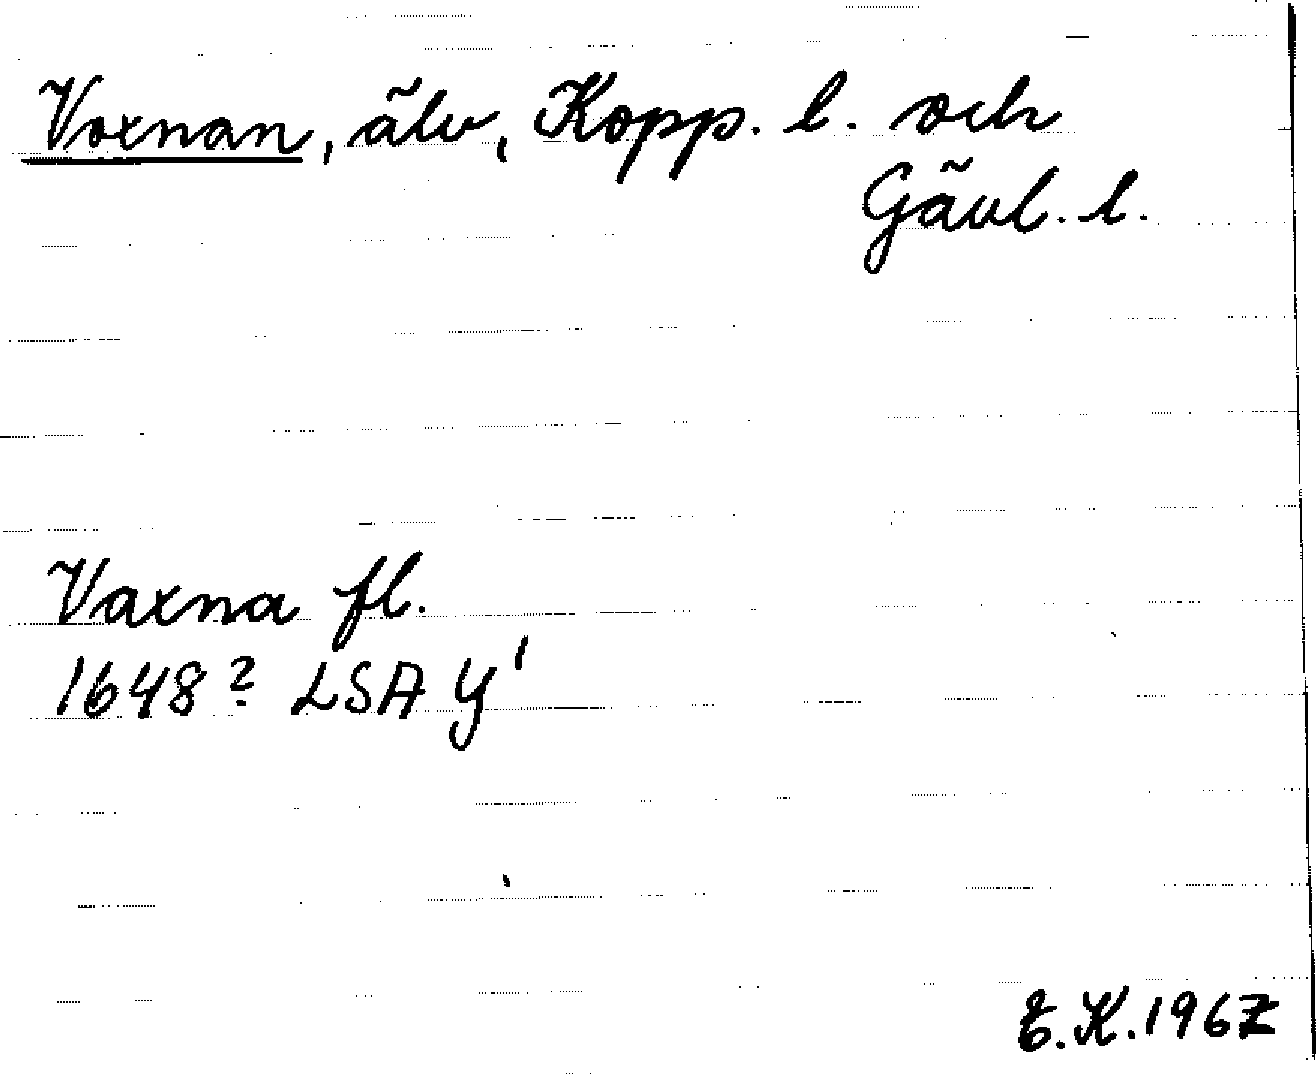 Voxnan, älv, Kopp. l. och
Gävl. l.
Vaxna fl.
1648? LSA Y'
E.K. 1967